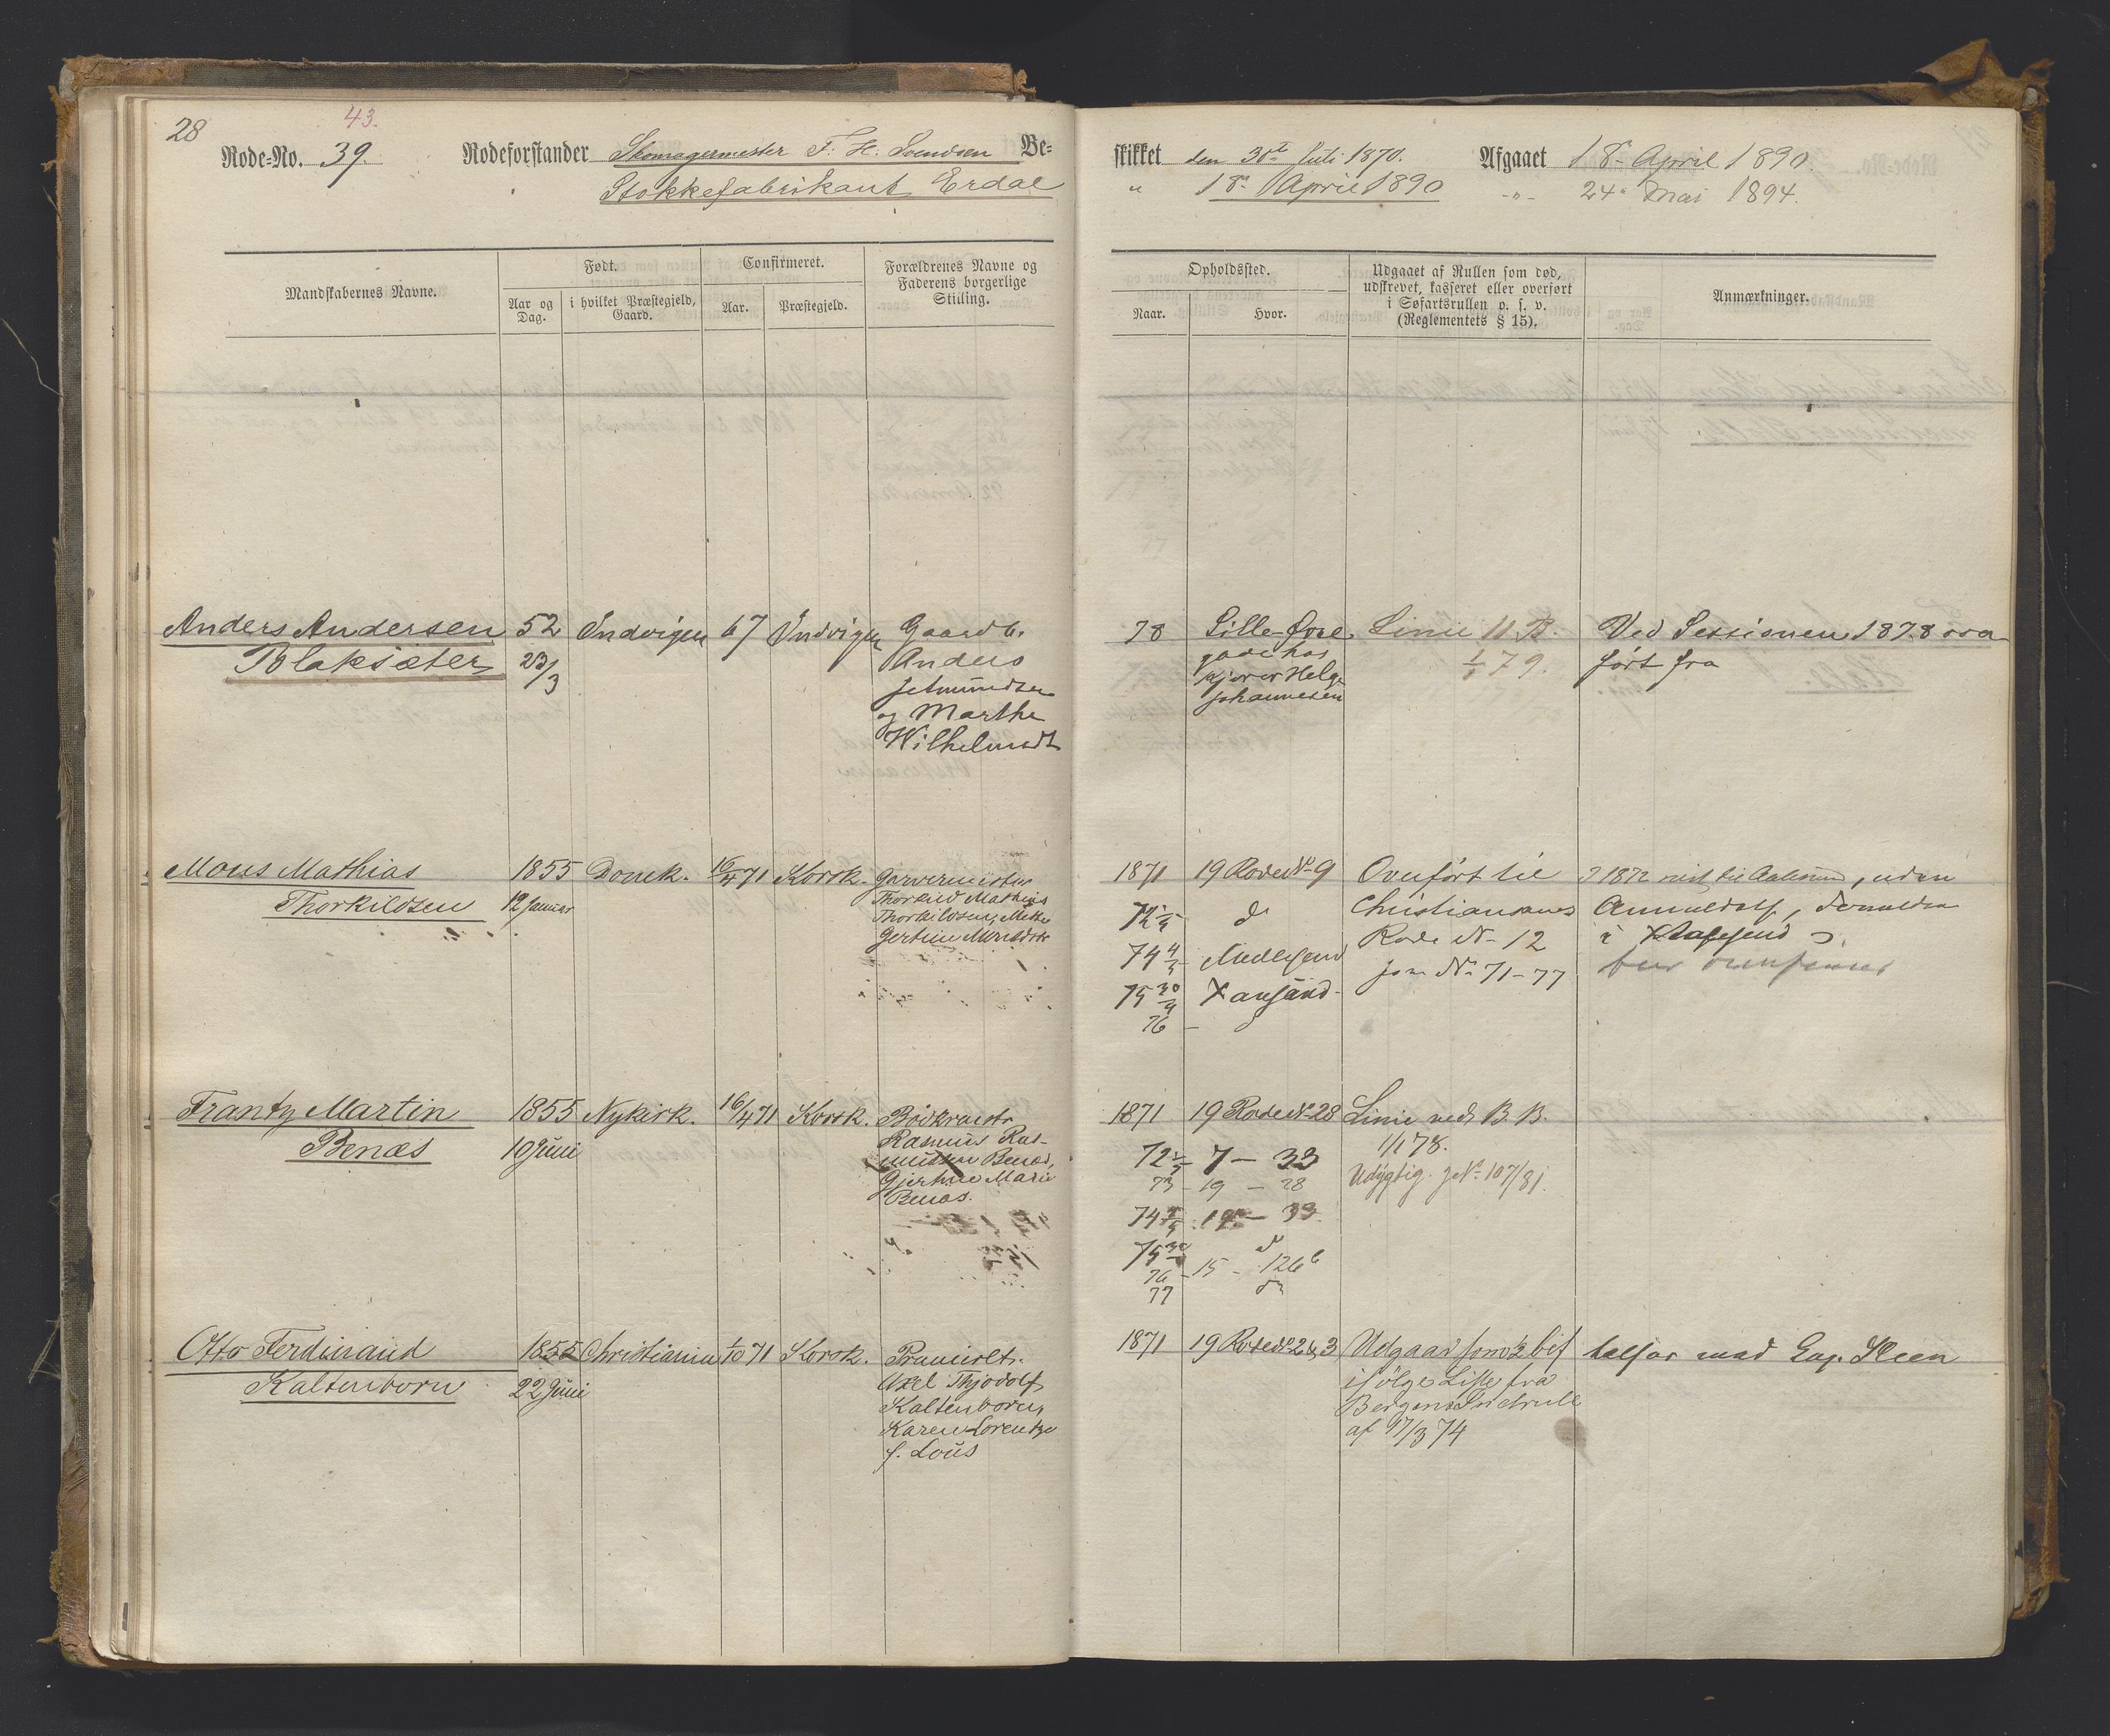 28
43.
Rode-No. 39. Rodeforstander Skomagermester F. H. Svendsen Be-
Stokkefabrikant Erdal
Mandskabernes Navne.
Født.
Aar og Dag.
i hvilket Præstegjeld, Gaard.
Confirmeret.
Aar.
Præstegjeld.
Forældrenes Navne og
Faderens borgerlige
Stilling.
Anders Andersen 52 Indvigen 67 Indvigen Gaardb.
Blaksæter 23/3 Anders
Jetmundsen
og Marthe
Wilhelmsdt
Mons Mathias 1855 Domk. 16/4 71 Korsk. Garvermester
Thorkildsen 12 Januar Mathias
Thorkildsen, Mette
Gertine
Frantz Martin 1855 Nykirk. 16/4 71 Korsk. Bødkermstr
Benæs 10 Juni Rasmus Ras-
mussen Benæs,
Gjertine Marie
Benæs.
Otto Ferdinand 1855 Christiania 1/10 71 Korsk. Premierlt.
Kaltenborn 22 Juni Axel Thjodolf
Kaltenborn,
Karen Lorentze
f. Lous
skikket den 30te Juli 1870. Afgaaet 18de April 1890.
" 18de April 1890 -"- 24de Mai 1894.
Opholdssted.
Naar.
Hvor.
Udgaaet af Rullen som død,
udskrevet, kasseret eller overført
i Søfartsrullen o. s. v.
(Reglementets § 15).
Anmærkninger.
78 Lille Øvre Linie 11. B. Ved Sessionen 1878 ova
gade hos 1/1 79. ført fra
kjører Helge
Johannesen
1871 19 Rode No 9 Overført til 1872 reist til Aalesund, uden
Christiansands Anmeldelse,
Rode No 12
74 4/5
Jour No 71-77
75 30/4 Xansand
76
1871 19 Rode No 28 Linie ved B. B.
72 7 - 33 1/1 78.
73 - 19 - 28 Udygtig. JNo 107/81.
74 19 - 33
75
76 - 15 - 126 b
77
1871 19 Rode No 2 & 3 Udgaar som
ifølge Liste fra
Bergens
af 17/3 74